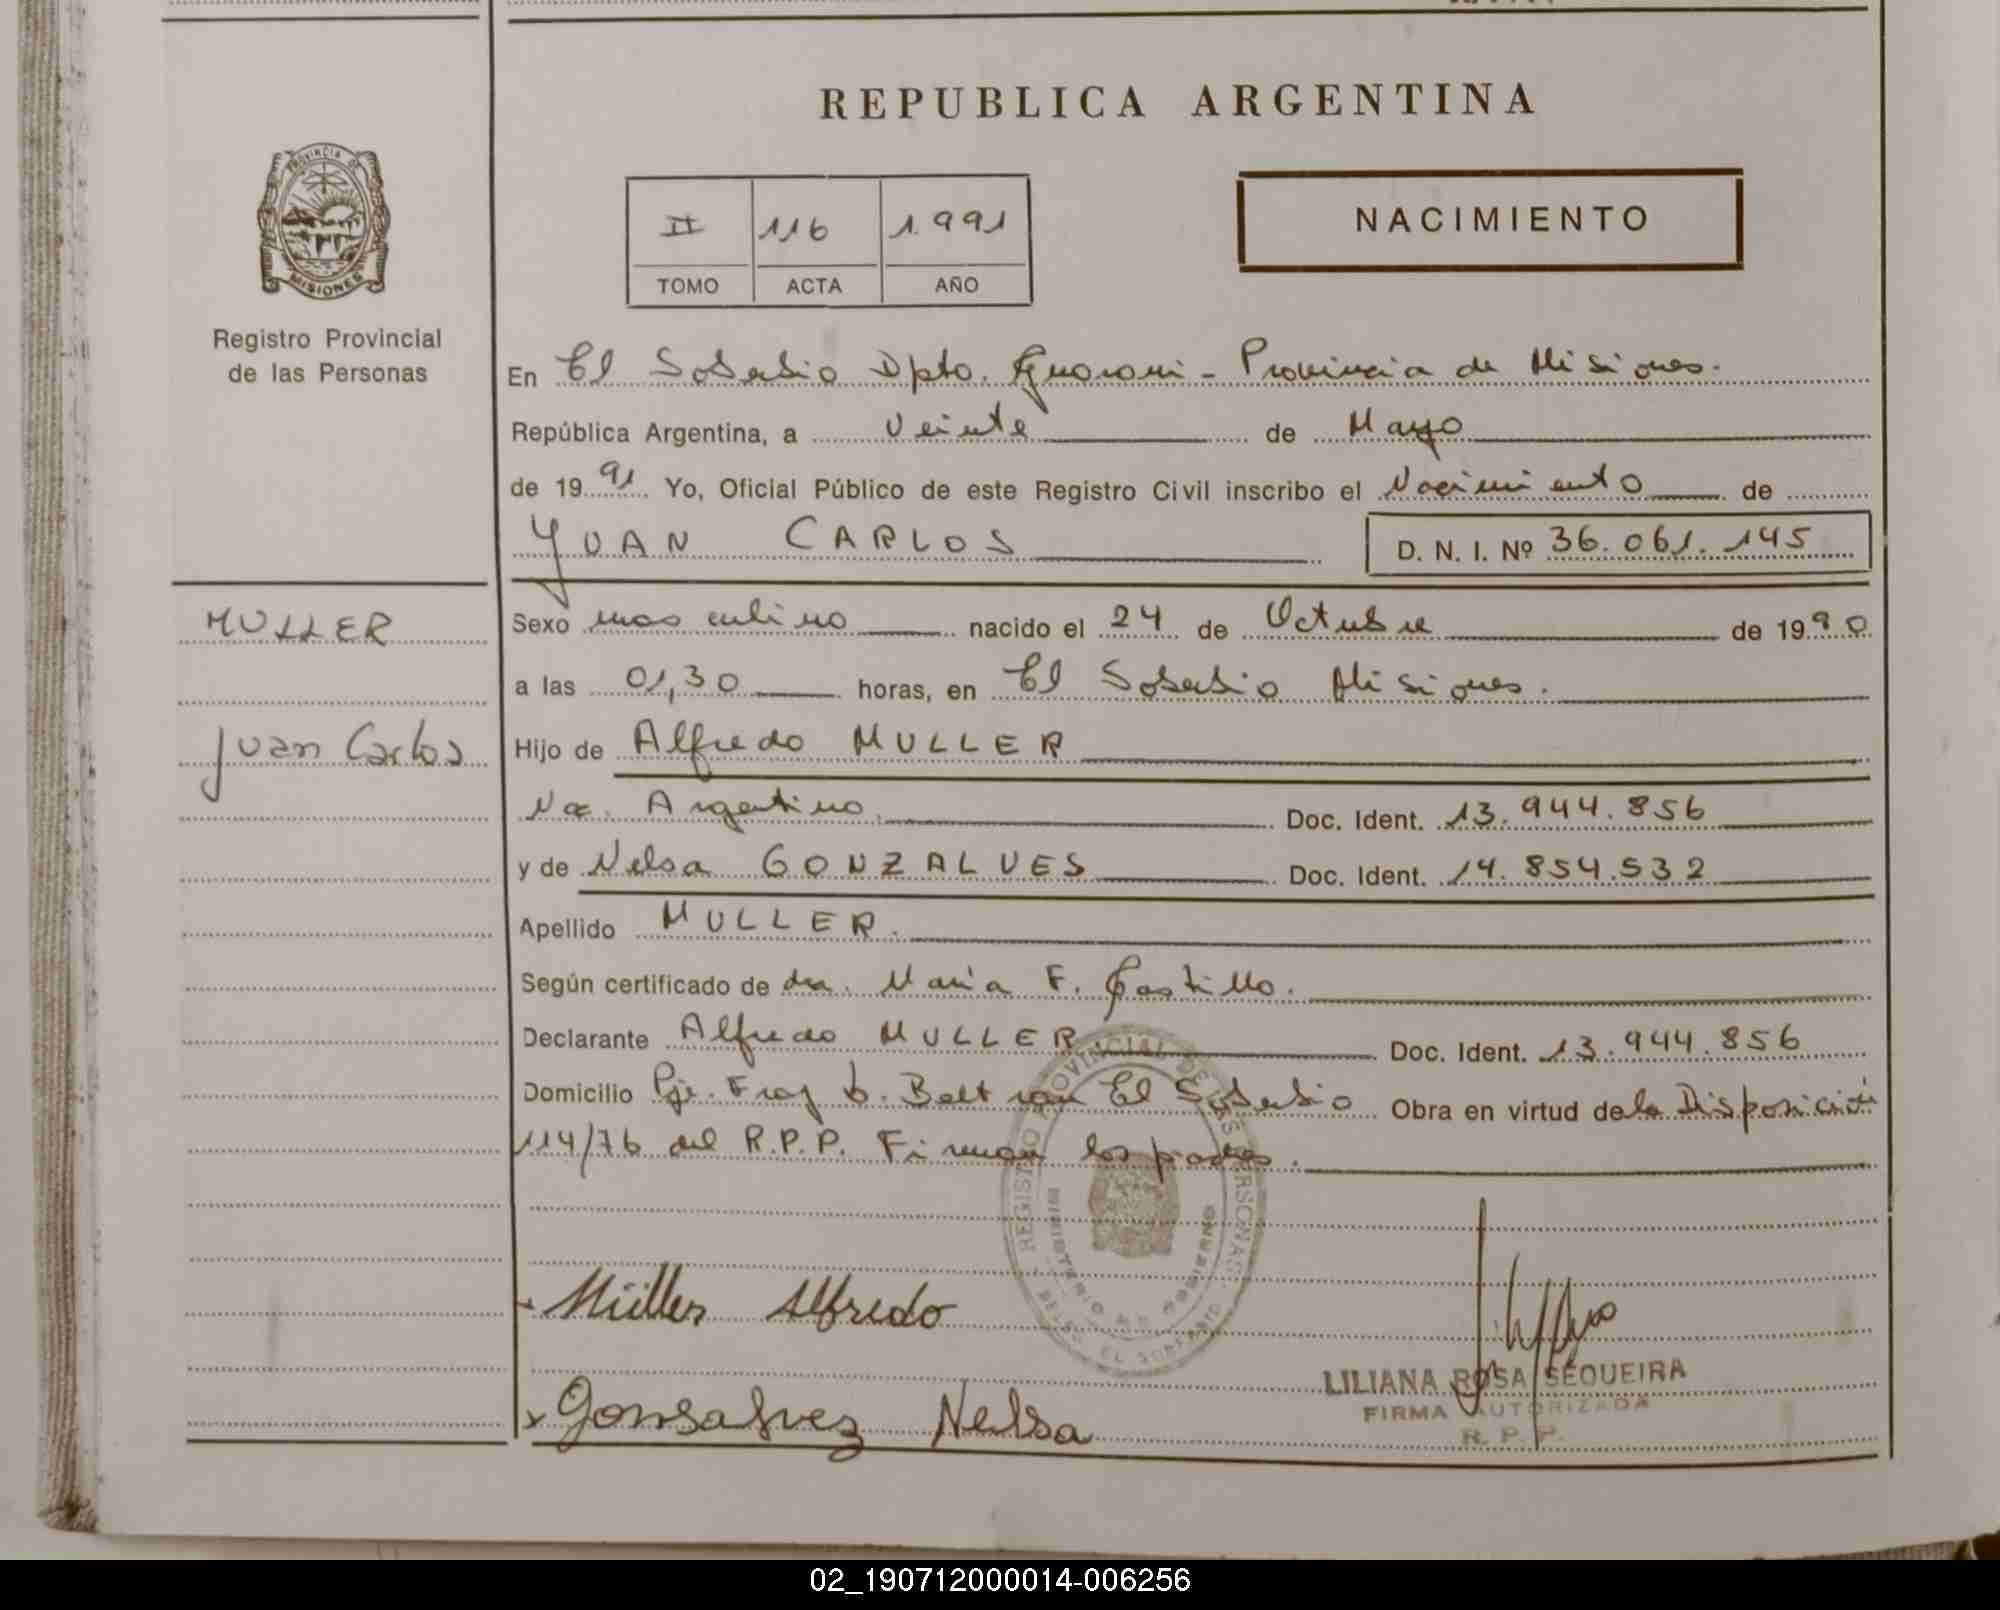 REPUBLICA ARGENTINA
PROVINCIA DE
MISIONES
Registro Provincial
de las Personas
II 116 1.991
TOMO ACTA AÑO
NACIMIENTO
En El Soberbio Dpto. Guarani - Provincia de Misiones.
República Argentina, a Veinte de Mayo
de 1991 Yo, Oficial Público de este Registro Civil inscribo el Nacimiento de
JUAN CARLOS D. N. I. Nº 36.061.145
MULLER
Juan Carlos
Sexo masculino nacido el 24 de Octubre de 1990
a las 01,30 horas, en El Soberbio Misiones.
Hijo de Alfredo MULLER
Nac. Argentino. Doc. Ident. 13.944.856
y de Nelsa GONZALVES Doc. Ident. 14.854.532
Apellido MULLER.
Según certificado de dra. Maria F. Castillo.
Declarante Alfredo MULLER Doc. Ident. 13.944.856
Domicilio Pje. Fray L. Beltran El Soberbio Obra en virtud de la Disposición
114/76 del R.P.P. Firman los padres.
REGISTRO PROVINCIAL DE LAS PERSONAS
MINISTERIO DE GOBIERNO
EL SOBERBIO
Müller Alfredo
Gonsalvez Nelsa
LILIANA ROSA SEQUEIRA
FIRMA AUTORIZADA
R. P. P.
02_190712000014-006256